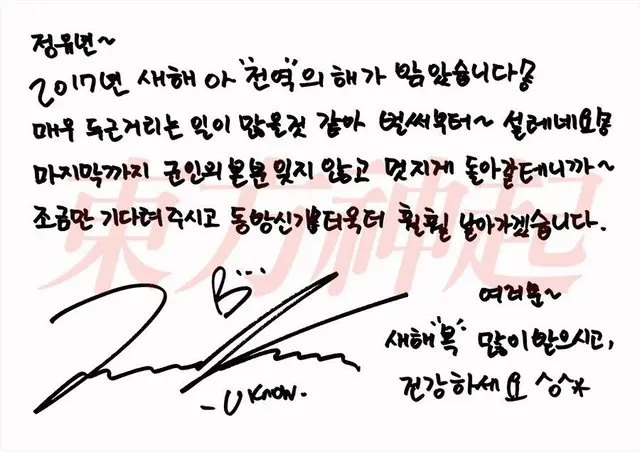 정유년~
2017년 새해 아 "전역"의 해가 밝았습니다!
매우 두근거리는 일이 많을것 같아 벌써부터~ 설레네요!
마지막까지 군인의 본분 잊지 않고 멋지게 돌아갈테니까~
조금만 기다려주시고 동방신기로 더욱더 훨훨 날아가겠습니다.
東方神起
B...
여러분~
새해 "복" 많이 받으시고,
건강하세요 ^^*
-U KNOW.